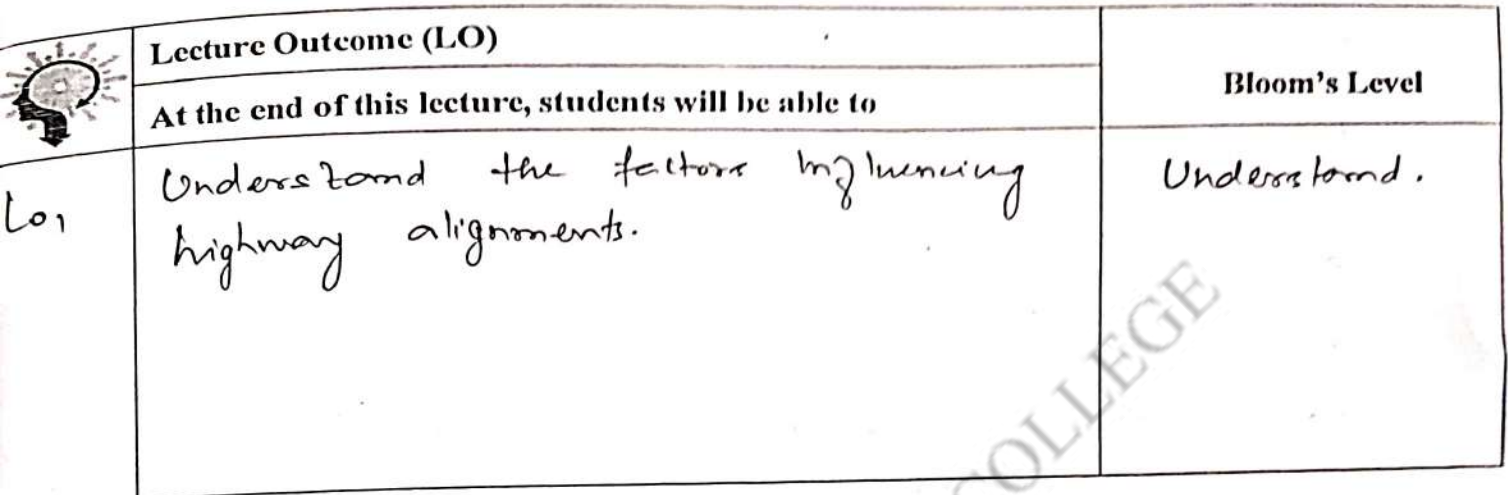 Lecture Outcome (LO)
Bloom's Level
At the end of this lecture, students will be able to
LO1
Understand the factors influencing
highway alignments.
Understand.
COLLEGE